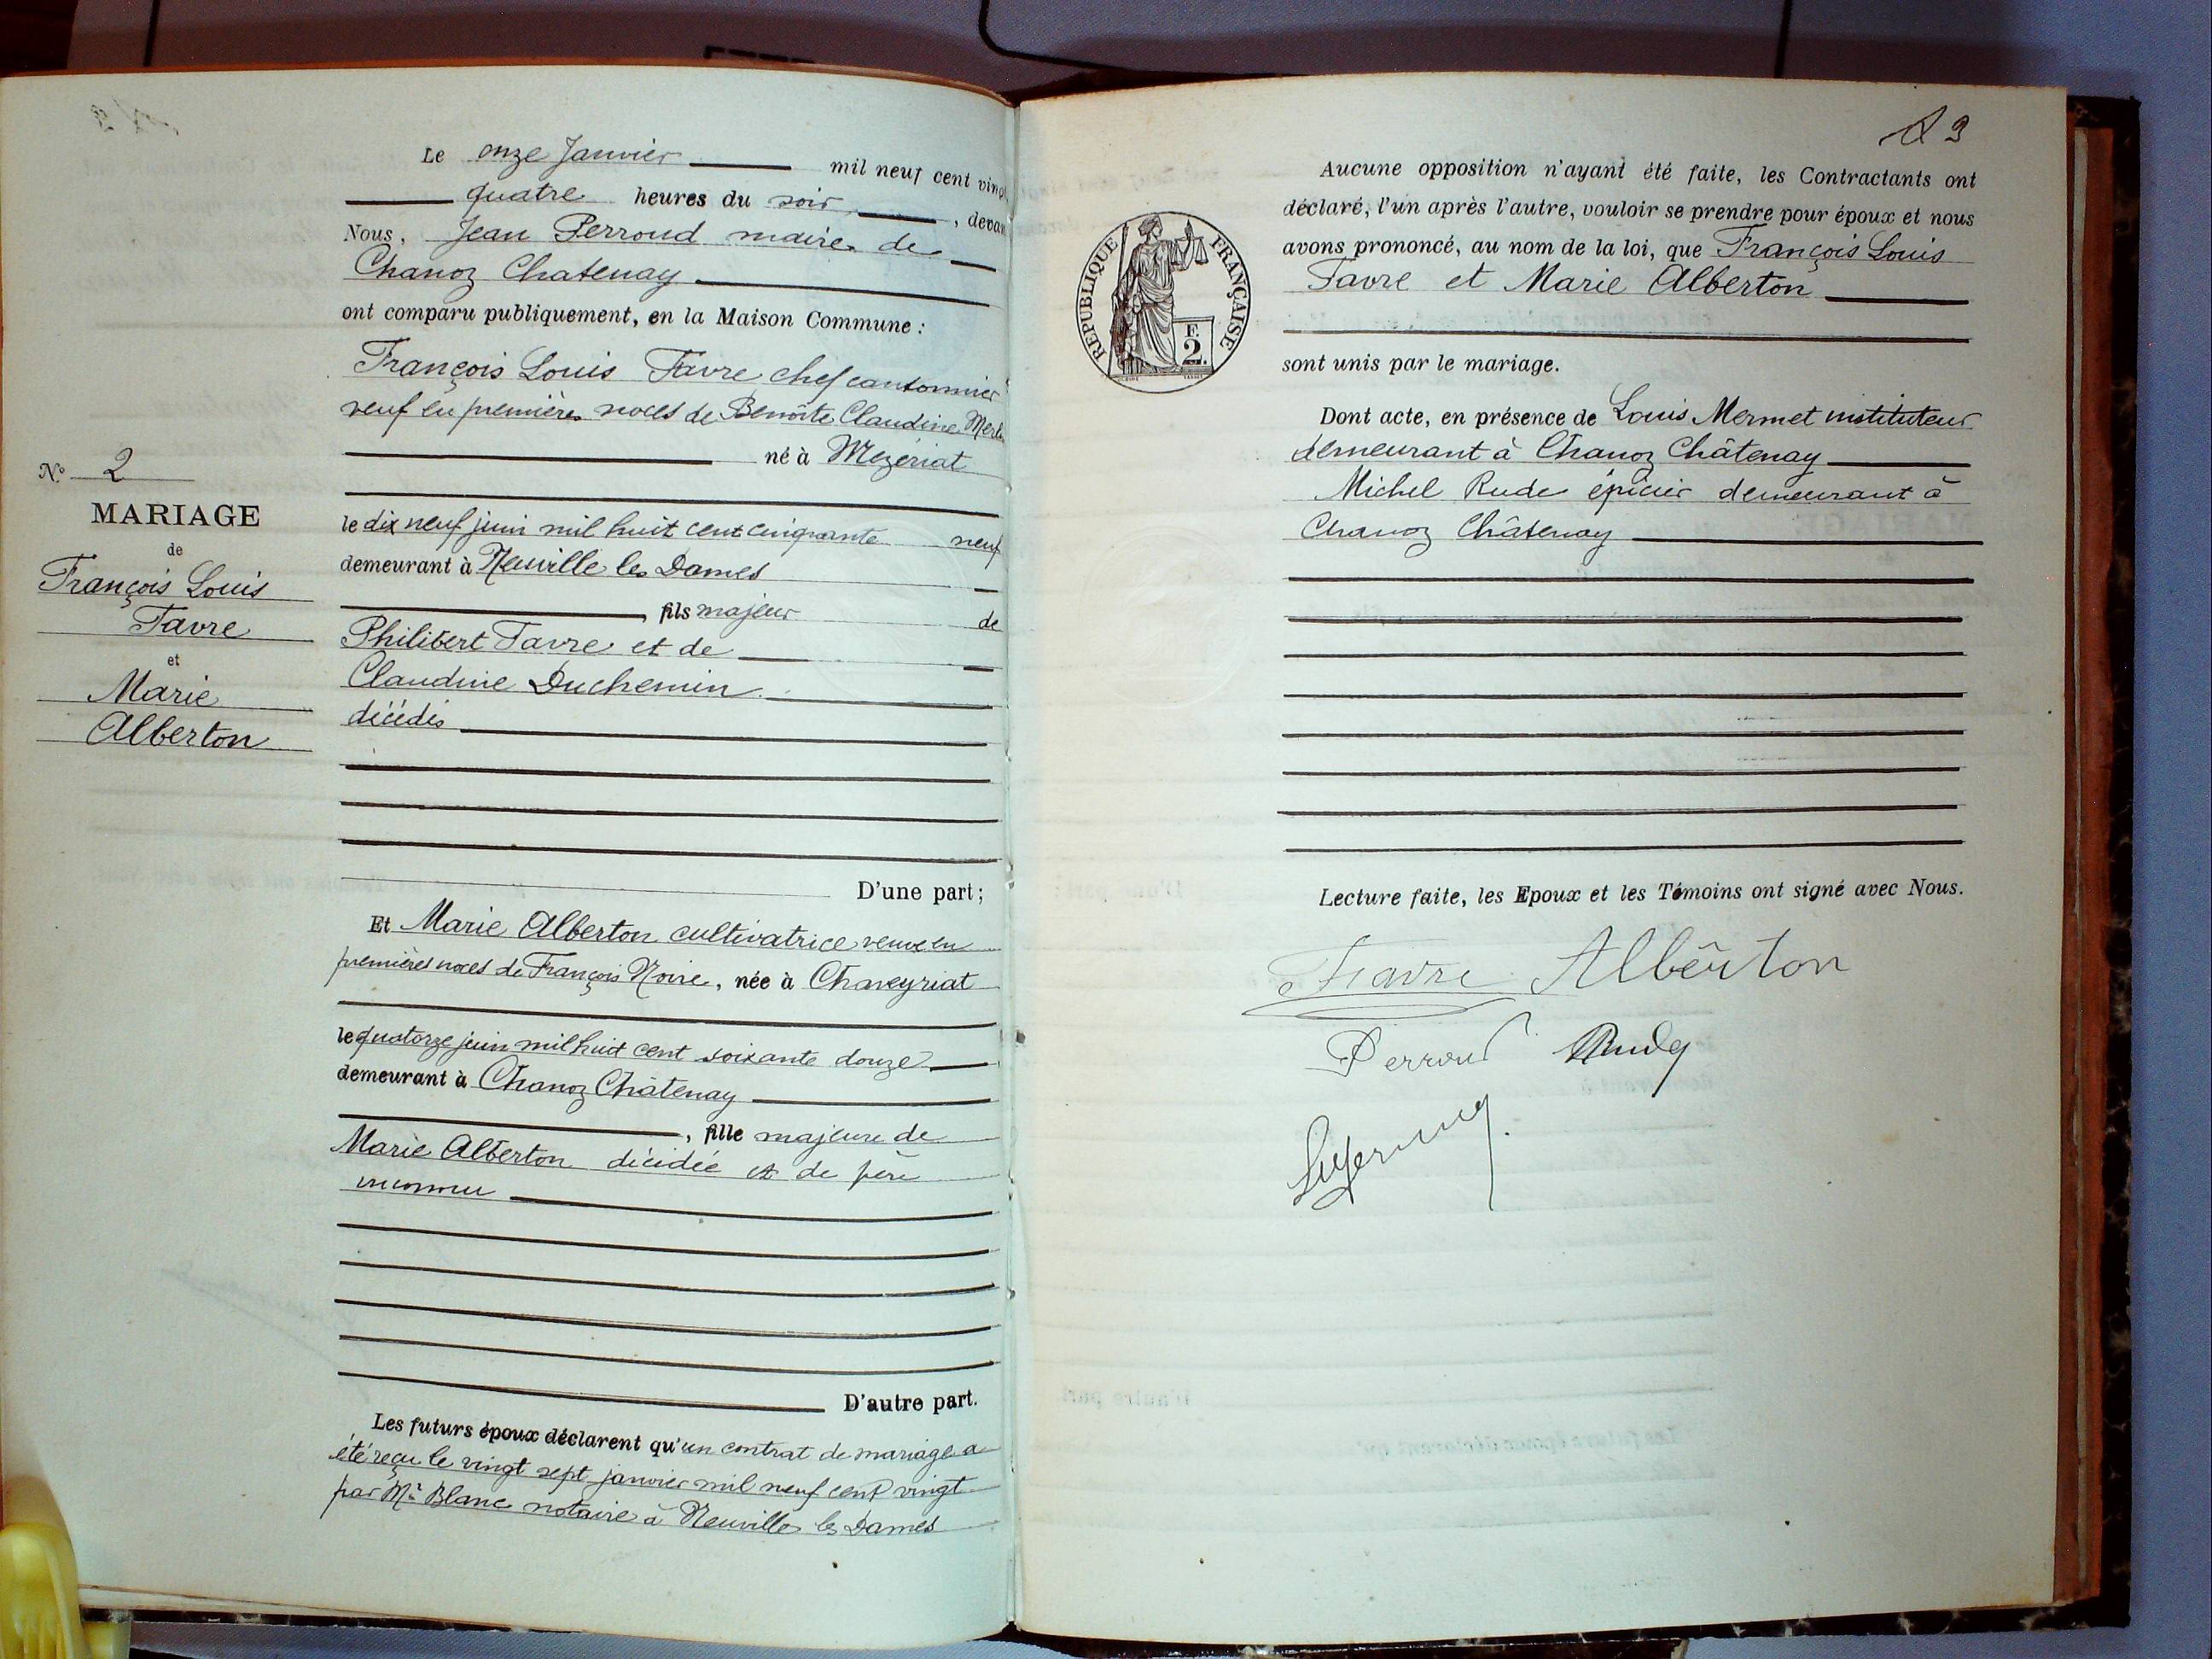 Le onze Janvier mil neuf cent vingt
quatre heures du soir, devant
Nous, Jean Perroud maire de
Chanoz Chatenay
ont comparu publiquement, en la Maison Commune :
François Louis Favre chef cantonnier
veuf en premières noces de Benoîte Claudine
né à Mezériat
le dix neuf juin mil huit cent cinquante neuf
demeurant à Neuville les Dames
fils majeur de
Philibert Favre et de
Claudine Duchemin
décédés
D'une part ;
Et Marie Alberton cultivatrice veuve en
premières noces de François Noire, née à Chaveyriat
le quatorze juin mil huit cent soixante douze
demeurant à Chanoz Châtenay
, fille majeure de
Marie Alberton décédée et de père
inconnu
D'autre part.
Les futurs époux déclarent qu'un contrat de mariage a
été reçu le vingt sept janvier mil neuf cent vingt
par Me Blanc notaire à Neuville les Dames
N° 2
MARIAGE
de
François Louis
Favre
et
Marie
Alberton
3
Aucune opposition n'ayant été faite, les Contractants ont
déclaré, l'un après l'autre, vouloir se prendre pour époux et nous
avons prononcé, au nom de la loi, que François Louis
Favre et Marie Alberton
sont unis par le mariage.
Dont acte, en présence de Louis Mermet instituteur
demeurant à Chanoz Châtenay
Michel Rude épicier demeurant à
Chanoz Châtenay
Lecture faite, les Epoux et les Témoins ont signé avec Nous.
Favre Alberton
Perroud Rude
REPUBLIQUE FRANÇAISE
F.
2.